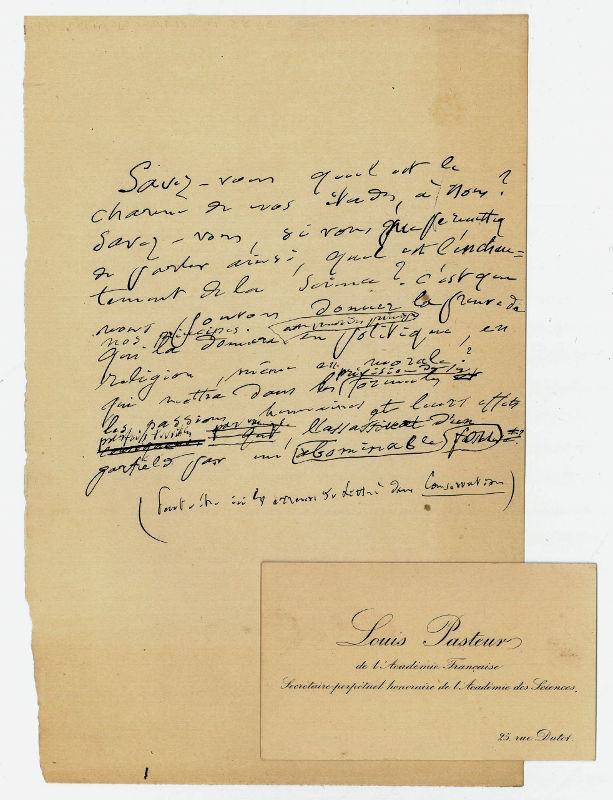 Savez-vous quel est le
charme de nos études, à nous?
Savez-vous, si vous me permettez
de parler ainsi, quel est l'enchan-
tement de la Science? C'est que
nous pouvons donner la preuve de
nos principes.
qui la donnera en politique, en
religion, même en morale?
qui mettra dans les formules
les passions humaines et leurs effets
l'assassinat d'un
garfield par un abominable fou
Conservation)
Louis Pasteur
de l'Académie Française
Secrétaire perpétuel honoraire de l'Académie des Sciences.
25, rue Dutot.